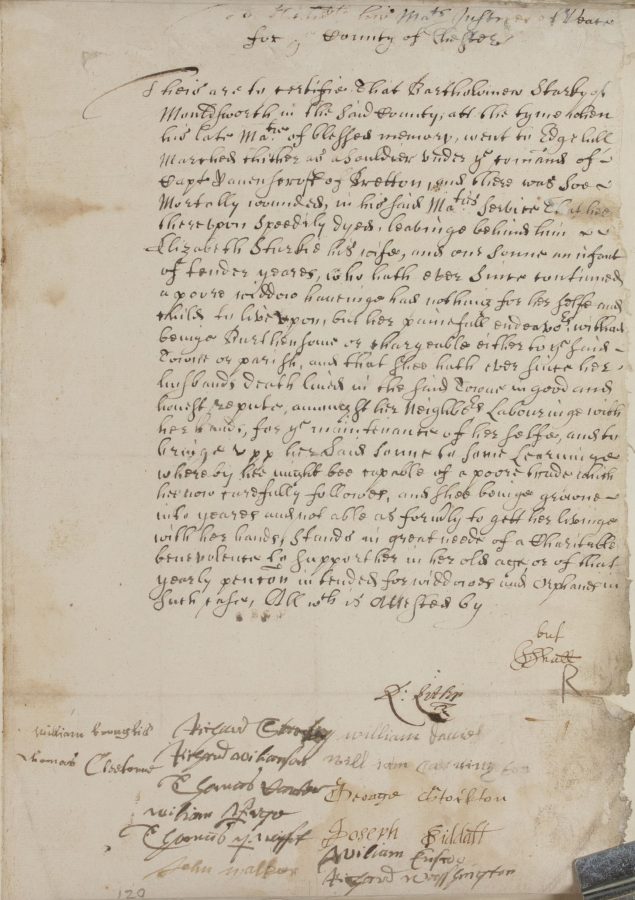 his Ma:ts Justices of Peace
for ye County of Chester
Theis are to certifie That Bartholomew Starky of
Mouldsworth in the said County, att the tyme when
his late Ma:tie of blessed memory, went to Edgehill
Marched thither as a souldier under ye comand of
Capt Ravenscroft of Bretton, and there was soe
Mortally wounded, in his said Ma:ties service that hee
thereupon speedily dyed, leavinge behind him
Elizabeth Starkie his wife, and one sonne an infant
of tender yeares, who hath ever since continued
a poore widdow haveinge had nothing for her selfe and
child to live upon, but her painefull endeavors, without
beinge Burthensome or chargeable either to ye said
Towne or parish, and that shee hath ever since her
husbands death lived in the said Towne in good and
honest repute, amongst her Neighbrs Labouringe with
her hands, for ye maintenance of her selfe, and to
bringe upp her said sonne to some Learninge
whereby hee might bee capable of a poore trade which
hee now carefully followes, and shee beinge growne
into yeares and not able as formrly to gett her livinge
with her hands, stands in great neede of a Charitable
benevolence to support her in her old age, or of that
yearly pencon intended for widdowes and Orphans in
such case, All wch is Attested by
R
William
Thomas
Richard
William
Richard Wilkinson
William
Thomas
George Stockton
William
Thomas
Joseph
John Walker
William
Richard
120